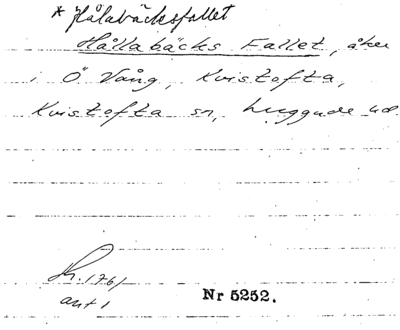 * Hålabäcksfallet
Hålla bäcks Fallet, åker
i Ö. Vång, Kvistofta,
Kvistofta sn, Luggude hd.
1761
akt 1
Nr 5252.